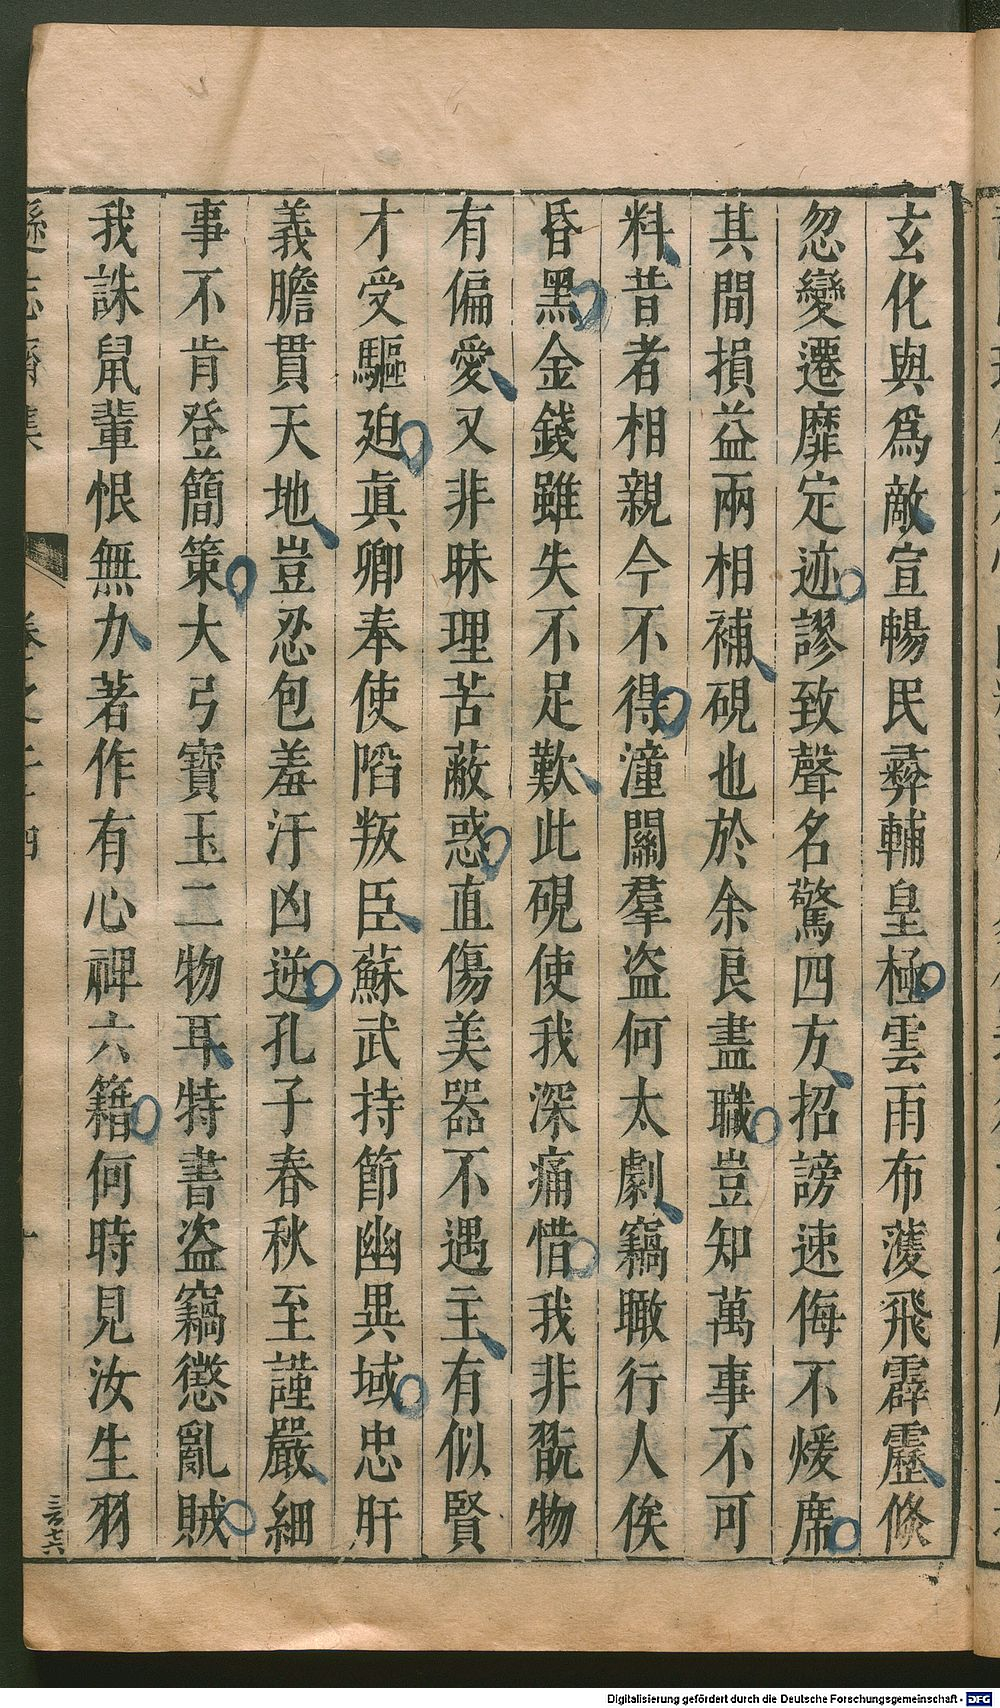 玄化與爲敵宣暢民彞輔皇極雲雨布濩飛霹靂倐
忽變遷靡定迹謬致聲名驚四方招謗速侮不煖席
其間損益兩相補硯也於余良盡職豈知萬事不可
料昔者相親今不得潼關羣盜何太劇竊瞰行人俟
昏黑金錢雖失不足歎此硯使我深痛惜我非翫物
有偏愛又非昧理苦蔽惑直傷美器不遇主有似賢
才受驅迫眞卿奉使䧟叛臣蘇武持節幽異域忠肝
義膽貫天地豈忍包羞汙凶逆孔子春秋至謹嚴細
事不肯登簡策大弓寶玉二物耳特書盜竊懲亂賊
我誅鼠輩恨無力著作有心禆六籍何時見汝生羽
遜志齋集
卷之二十四
十
三百七十六
Digitalisierung gefördert durch die Deutsche Forschungsgemeinschaft - DFG